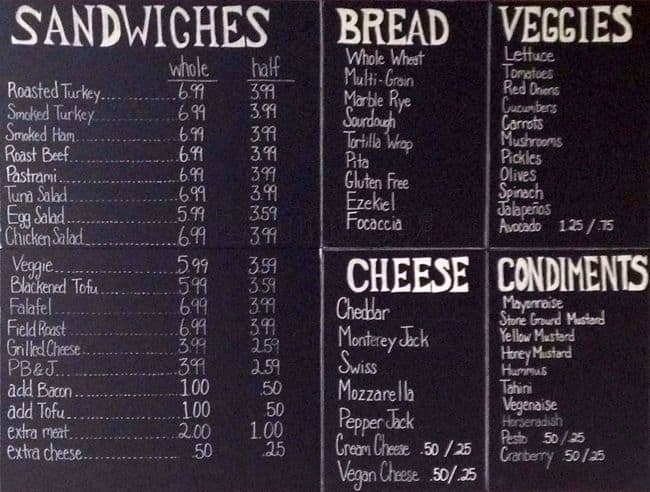 SANDWICHES
whole half
Roasted Turkey 6.99 3.99
Smoked Turkey 6.99 3.99
Smoked Ham 6.99 3.99
Roast Beef 6.99 3.99
Pastrami 6.99 3.99
Tuna Salad 6.99 3.99
Egg Salad 5.99 3.59
Chicken Salad 6.99 3.99
Veggie 5.99 3.59
Blackened Tofu 5.99 3.59
Falafel 6.99 3.99
Field Roast 6.99 3.99
Grilled Cheese 3.99 2.59
PB&J 3.99 2.59
add Bacon 1.00 .50
add Tofu 1.00 .50
extra meat 2.00 1.00
extra cheese .50 .25
BREAD
Whole Wheat
Multi-Grain
Marble Rye
Sourdough
Tortilla Wrap
Pita
Gluten Free
Ezekiel
Focaccia
VEGGIES
Lettuce
Tomatoes
Red Onions
Cucumbers
Carrots
Mushrooms
Pickles
Olives
Spinach
Jalapeños
Avocado 1.25/.75
CHEESE
Cheddar
Monterey Jack
Swiss
Mozzarella
Pepper Jack
Cream Cheese .50/.25
Vegan Cheese .50/.25
CONDIMENTS
Mayonnaise
Stone Ground Mustard
Yellow Mustard
Honey Mustard
Hummus
Tahini
Vegenaise
Horseradish
Pesto .50/.25
Cranberry .50/.25